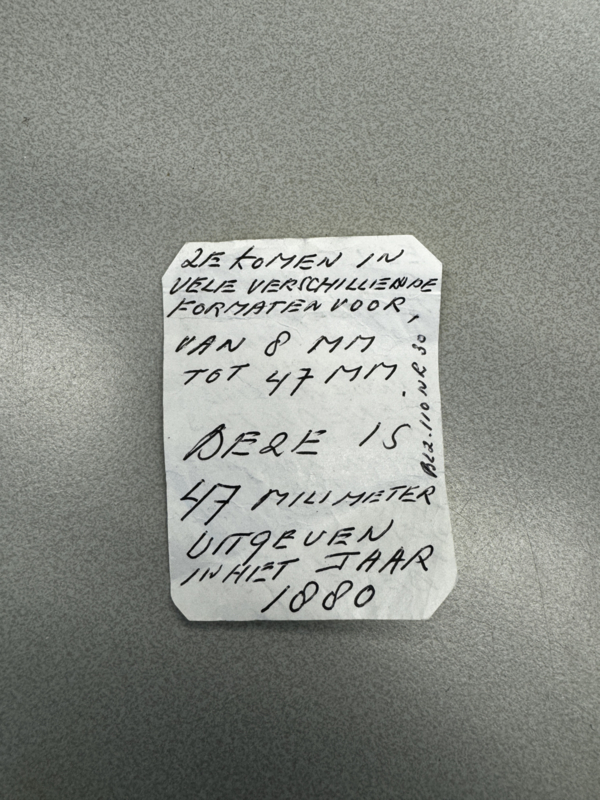 ZE KOMEN IN
VELE VERSCHILLENDE
FORMATEN VOOR,
VAN 8 MM
TOT 47 MM.
DEZE IS
47 MILIMETER
UITGEVEN
IN HET JAAR
1880
BLZ. 110 NR 30